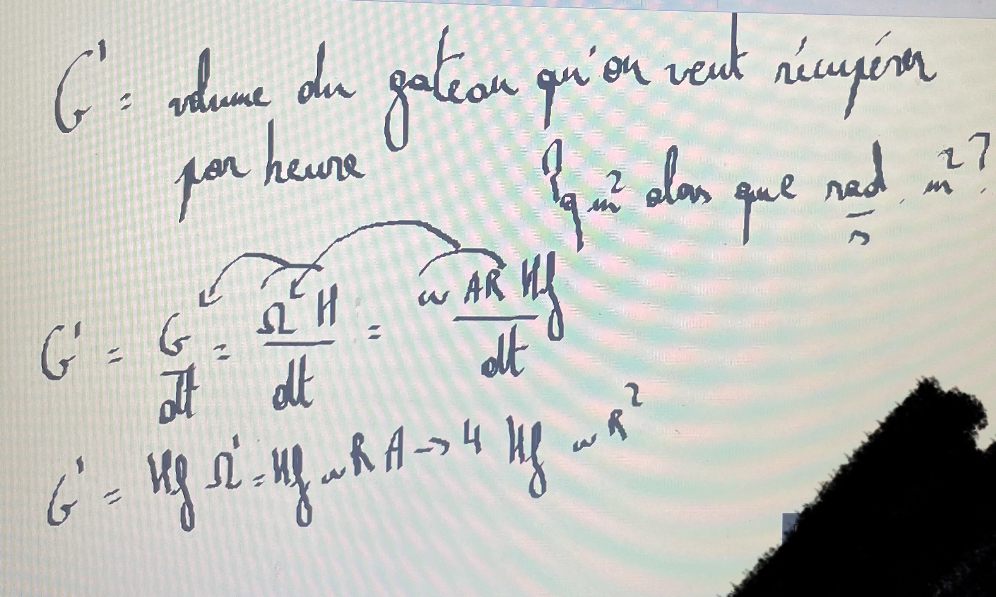 G' = volume du gateau qu'on veut récupérer
par heure
m² alors que rad/s . m² ?
G' = G/dt = Ω H/dt = ω AR Hf/dt
G' = Hf Ω' = Hf ω R A → 4 Hf ω R²